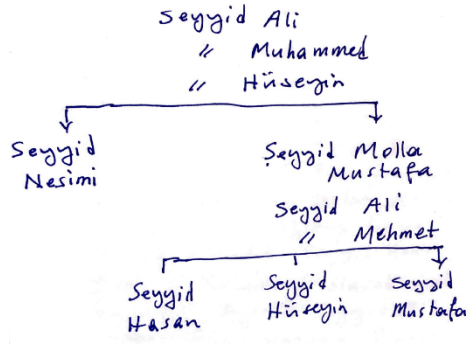 Seyyid Ali
〃 Muhammed
〃 Hüseyin
Seyyid Nesimi
Seyyid Molla Mustafa
Seyyid Ali
〃 Mehmet
Seyyid Hasan
Seyyid Hüseyin
Seyyid Mustafa